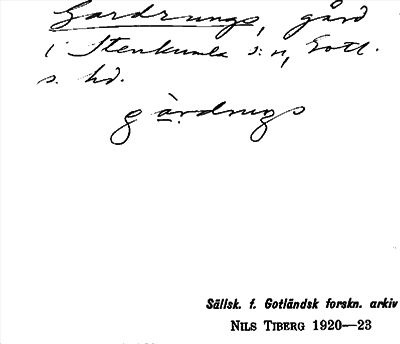 Gardrungs, gård
i Stenkumla s:n, Gotl.
s. hd.
gàrdrugs
Sällsk. f. Gotländsk forskn. arkiv
NILS TIBERG 1920—23